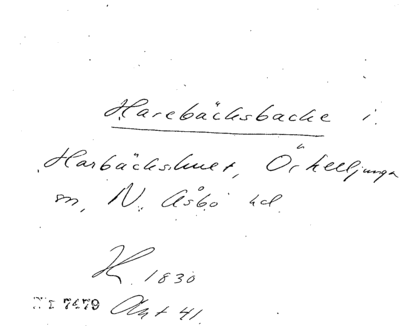 Harebäcksbacke i
Harbäckshult, Örkelljunga
sn, N. Åsbo hd.
1830
Nr 7479 Akt 41